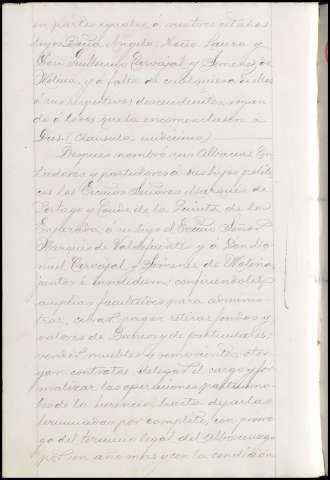 en partes iguales á nuestros citados
hijos Doña Angela, Doña Laura y
Don Guillermo Carvajal y Jimenez de
Molina, y á falta de cualquiera de ellos
á sus respectivos descendientes, rogan
do á todos que la encomienden á
Dios. (Clausula undecima)
Despues nombró sus Albaceas Con
tadores y partidores a sus hijos politi
cos los Excmos Señores Marqués de
Portago y Conde de la Quinta de la
Enjarada, á su hijo el Excmo Señor
Marqués de Valdefuentes y a Don Ma
nuel Carvajal y Jimenez de Molina,
juntos é insolidum, confiriendoles
amplias facultades para adminis
trar, cobrar, pagar, retirar fondos y
valores de Bancos y de particulares,
vender muebles y semovientes, otor
gar contratos, delegar el cargo y for
malizar las operaciones particiona
les de la herencia hasta dejarlas
terminadas por completo, con prorro
ga del termino legal del Albaceazgo
por un año mas y con la condicion